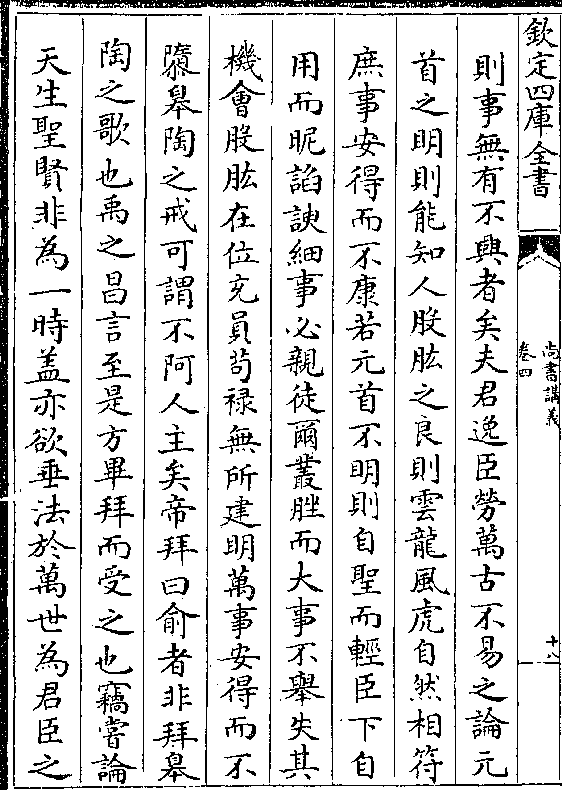 欽定四庫全書
尚書講義
卷四
十八
則事無有不興者矣夫君逸臣勞萬古不易之論元
首之明則能知人股肱之良則雲龍風虎自然相符
庶事安得而不康若元首不明則自聖而輕臣下自
用而昵諂諛細事必親徒爾叢脞而大事不舉失其
機會股肱在位充員苟祿無所建明萬事安得而不
隳皋陶之戒可謂不阿人主矣帝拜曰俞者非拜皋
陶之歌也禹之昌言至是方畢拜而受之也竊嘗論
天生聖賢非為一時蓋亦欲垂法於萬世為君臣之